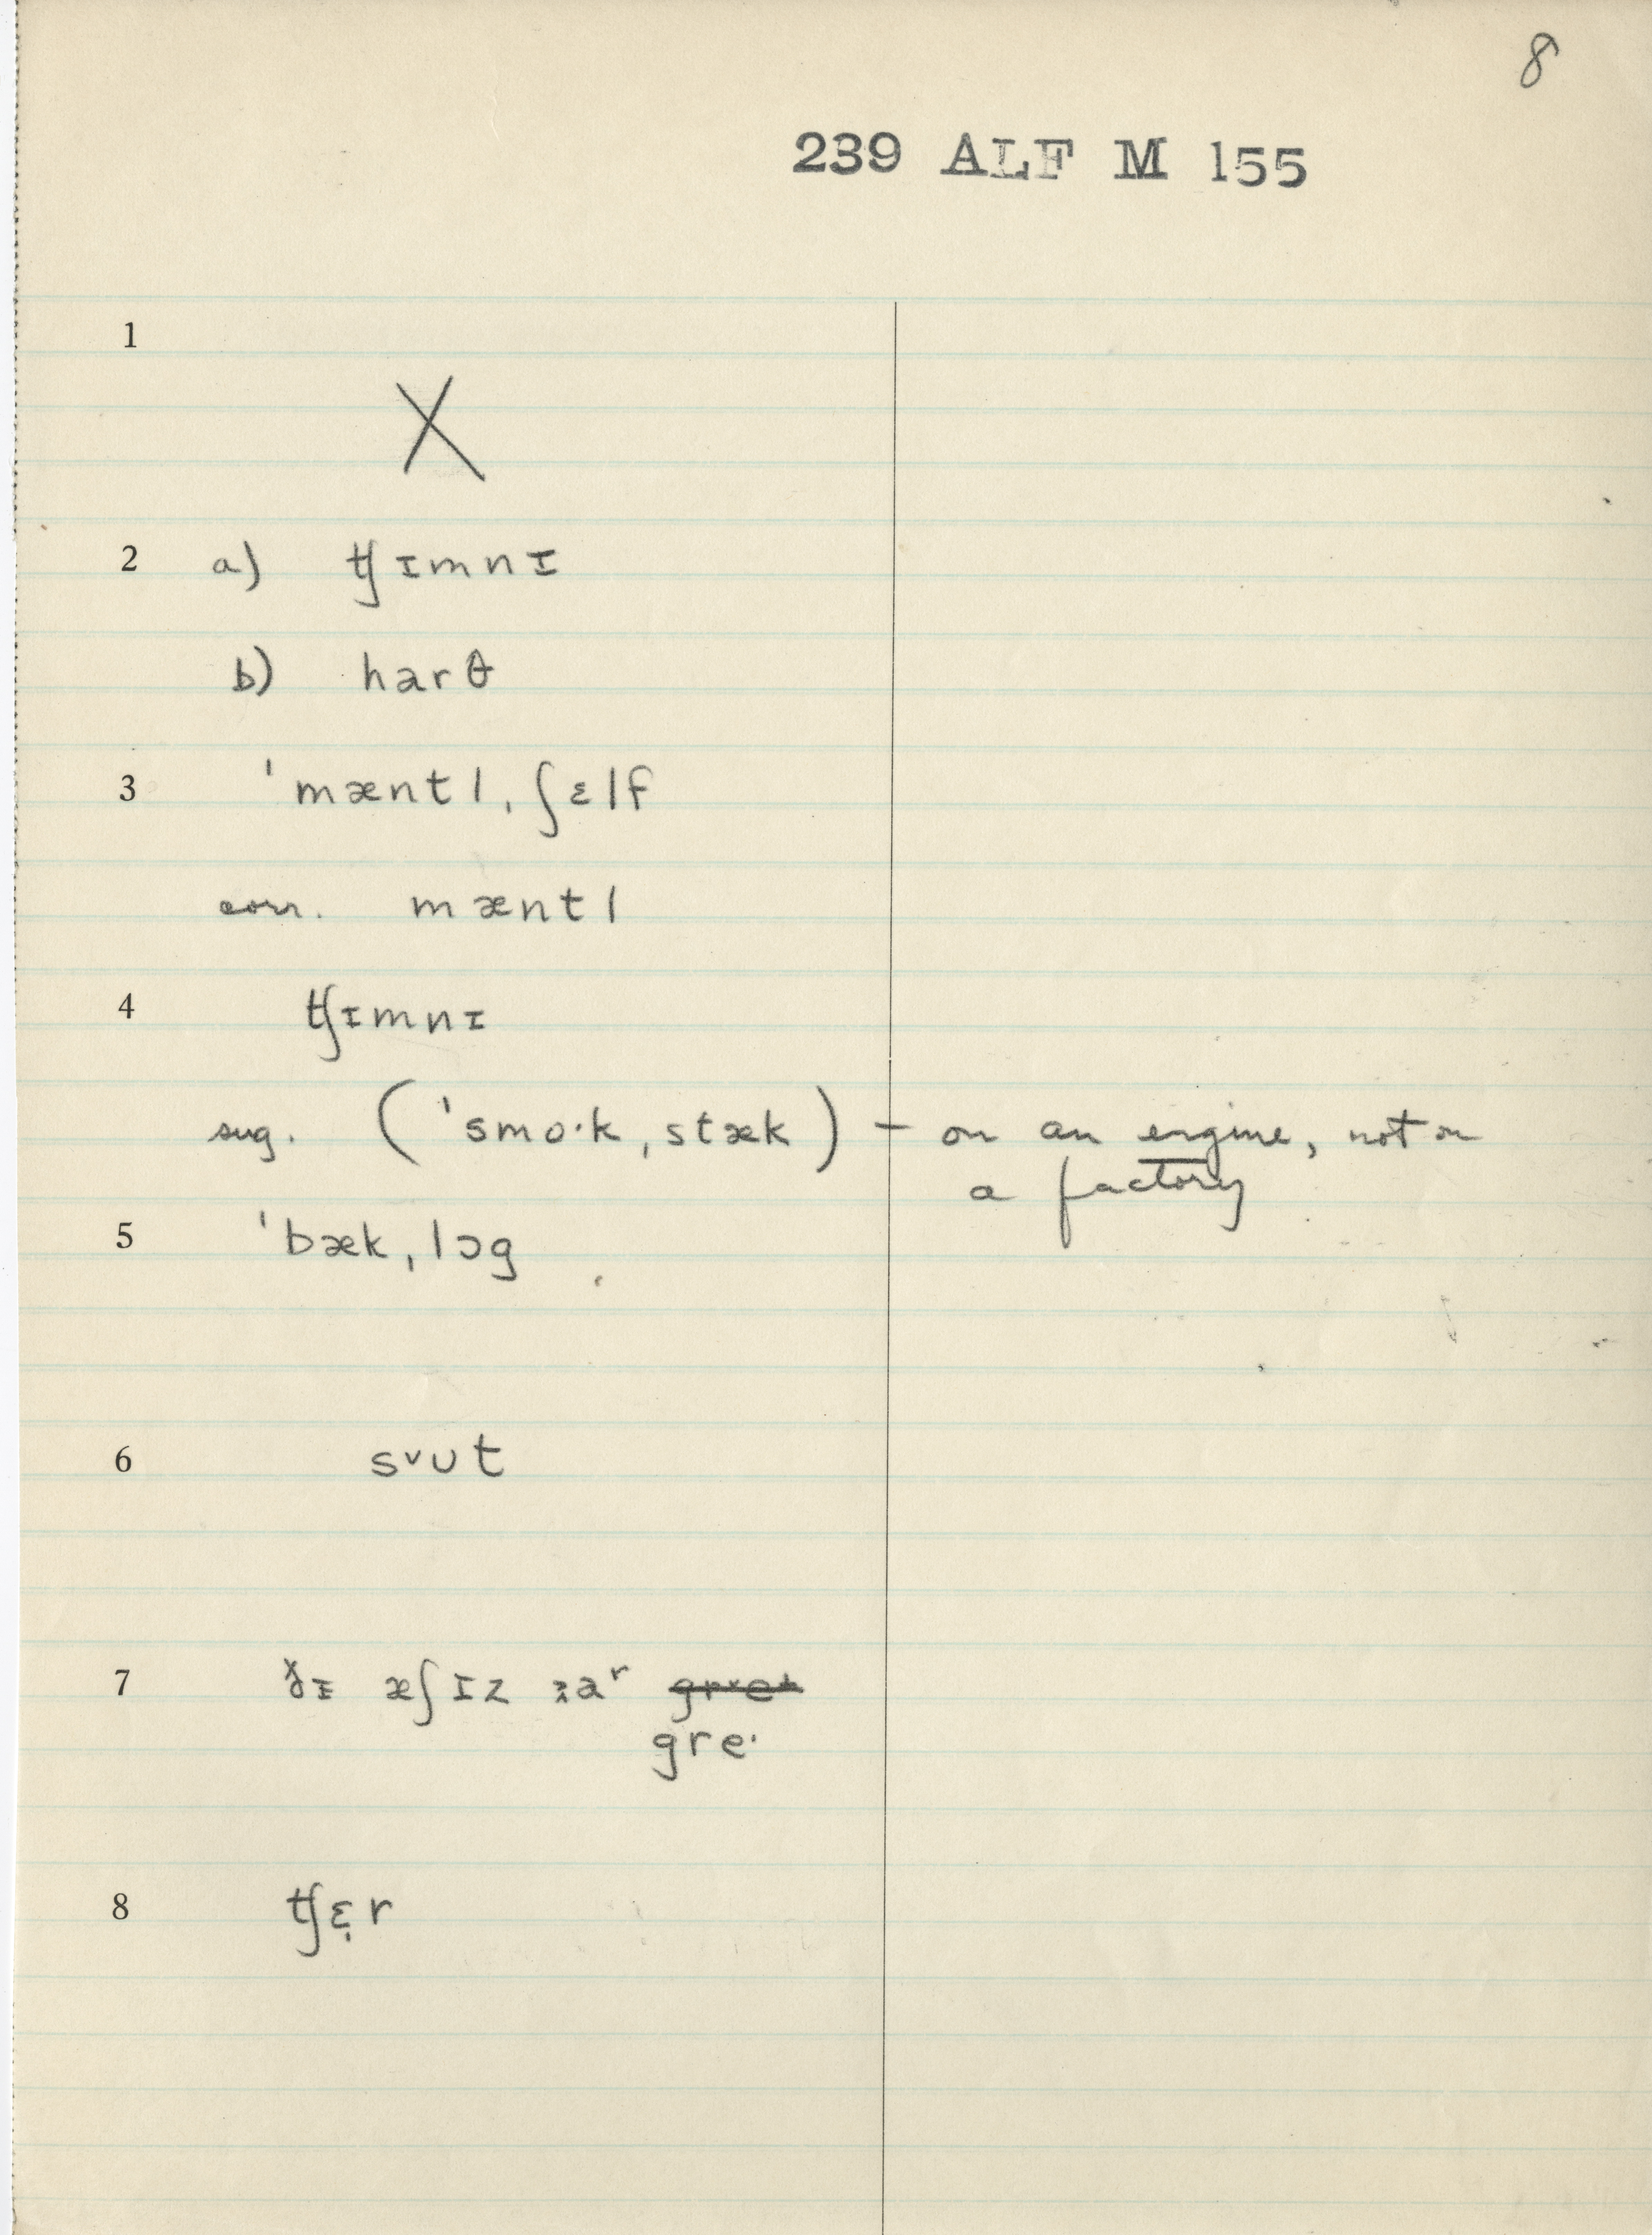 8
239 ALF M 155
1
X
2 a) ʧɪmnɪ
b) harθ
3 ˈmæntl ˌʃɛlf
corr. mæntl
4 ʧɪmnɪ
sug. (ˈsmo·k ˌstæk) – on an engine, not on
a factory
5 ˈbæk ˌlɔg
6 sᵛut
7 æʃɪz gre·
8 ʧɛr